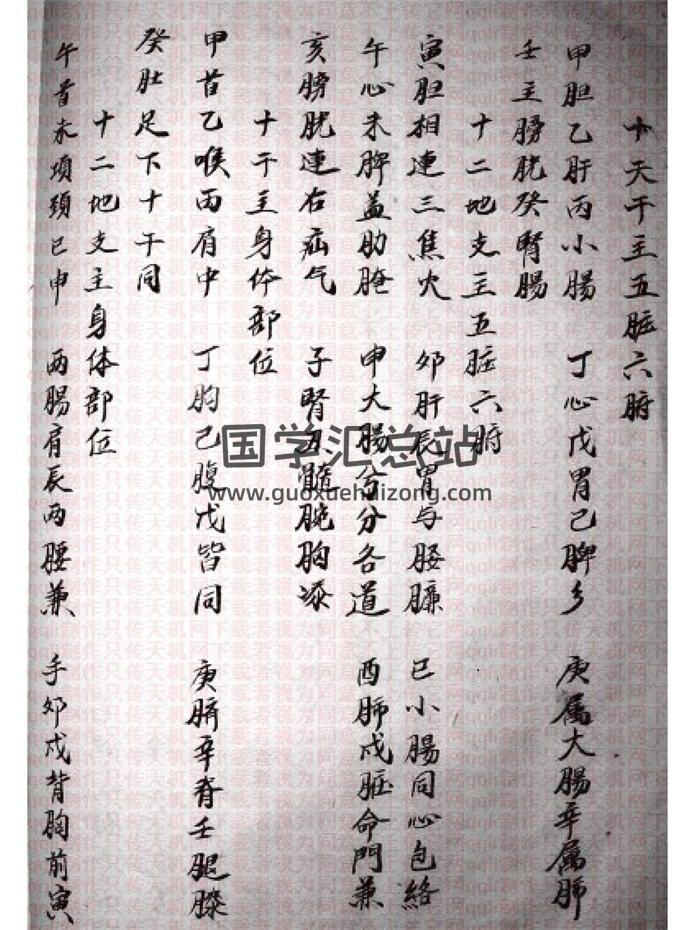 十天干主五脏六腑
甲胆乙肝丙小腸 丁心戊胃己脾乡 庚属大腸辛属肺
壬主膀胱癸腎腸
十二地支主五脏六腑
寅胆相連三焦火 夘肝辰胃与腰臁 巳小腸同心包絡
午心未脾益肋腌 申大腸 分各道 酉肺戌 命門兼
亥膀胱連右疝气 子腎 髓腕胸
十干主身体部位
甲首乙喉丙肩中 丁胸己腹戊皆同 庚臍辛脊壬腿膝
癸肚足下十干同
十二地支主身体部位
午首未項頸巳申 两腸肩辰两腰兼 手夘戌背胸前寅
国学汇总站
www.guoxuehuizong.com